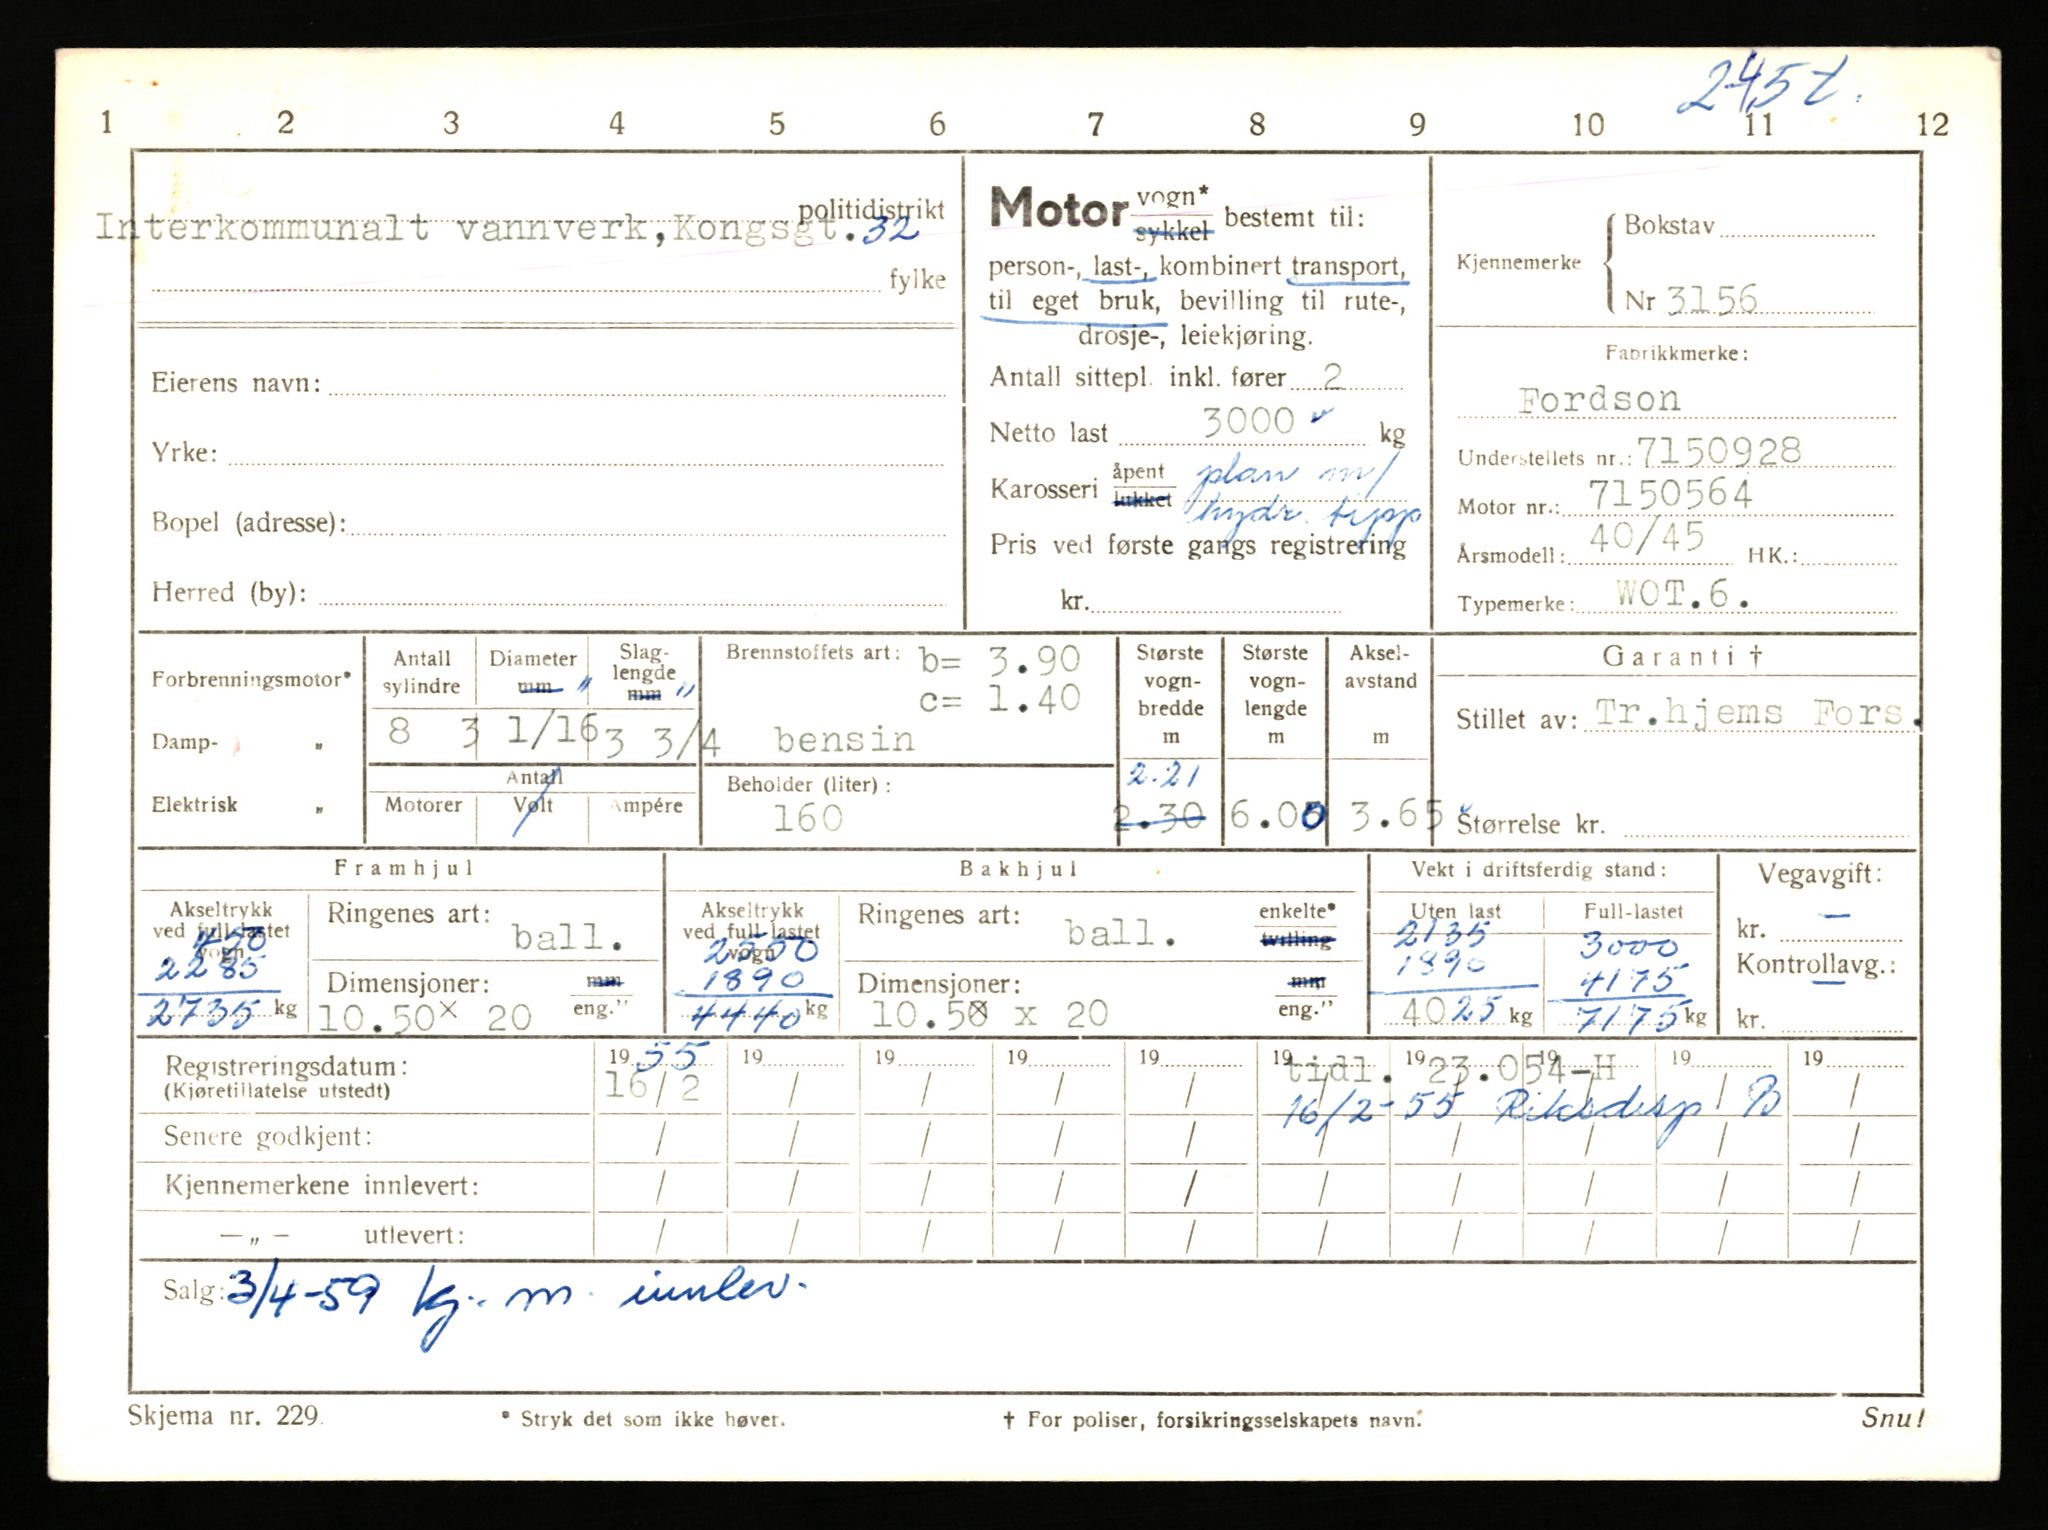 2,45t.
1 2 3 4 5 6 7 8 9 10 11 12
politidistrikt
Interkommunalt vannverk,Kongsgt.32
fylke
Eierens navn:
Yrke:
Bopel (adresse):
Herred (by):
Motor vogn* sykkel bestemt til:
person-, last-, kombinert transport,
til eget bruk, bevilling til rute-,
drosje-, leiekjøring.
Antall sittepl. inkl. fører 2
Netto last 3000 kg
Karosseri åpent lukket plan m/
hydr. tipp
Pris ved første gangs registrering
kr.
Kjennemerke Bokstav
Nr 3156
Fabrikkmerke:
Fordson
Understellets nr.: 7150928
Motor nr.: 7150564
Årsmodell: 40/45 HK.:
Typemerke: WOT.6.
Forbrenningsmotor*
Damp- „
Elektrisk „
Antall sylindre
8
Diameter mm "
3 1/16
Slaglengde mm "
3 3/4
Antall
Motorer Volt Ampére
Brennstoffets art: b= 3.90
c= 1.40
bensin
Beholder (liter):
160
Største vogn-bredde m
2.21
2.30
Største vogn-lengde m
6.00
Aksel-avstand m
3.65
Garanti †
Stillet av: Tr.hjems Fors.
Størrelse kr.
Framhjul
Akseltrykk ved full-lastet vogn
450
2285
2735 kg
Ringenes art: ball.
Dimensjoner: mm
10.50x 20 eng."
Bakhjul
Akseltrykk ved full-lastet vogn
2550
1890
4440 kg
Ringenes art: ball. enkelte* tvilling
Dimensjoner: mm
10.50 x 20 eng."
Vekt i driftsferdig stand:
Uten last
2135
1890
4025 kg
Full-lastet
3000
4175
7175 kg
Vegavgift:
kr. —
Kontrollavg.:
—
kr.
Registreringsdatum: 19 55 19 19 19 19 19 19 19 19 19
(Kjøretillatelse utstedt) 16/2 / / / / / / / / /
tidl. 23.054-H
16/2-55 Riksdesp. B
Senere godkjent: / / / / / / / / / /
Kjennemerkene innlevert: / / / / / / / / / /
—„— utlevert: / / / / / / / / / /
Salg: 3/4-59 kj. m. innlev.
Skjema nr. 229. * Stryk det som ikke høver. † For poliser, forsikringsselskapets navn. Snu!